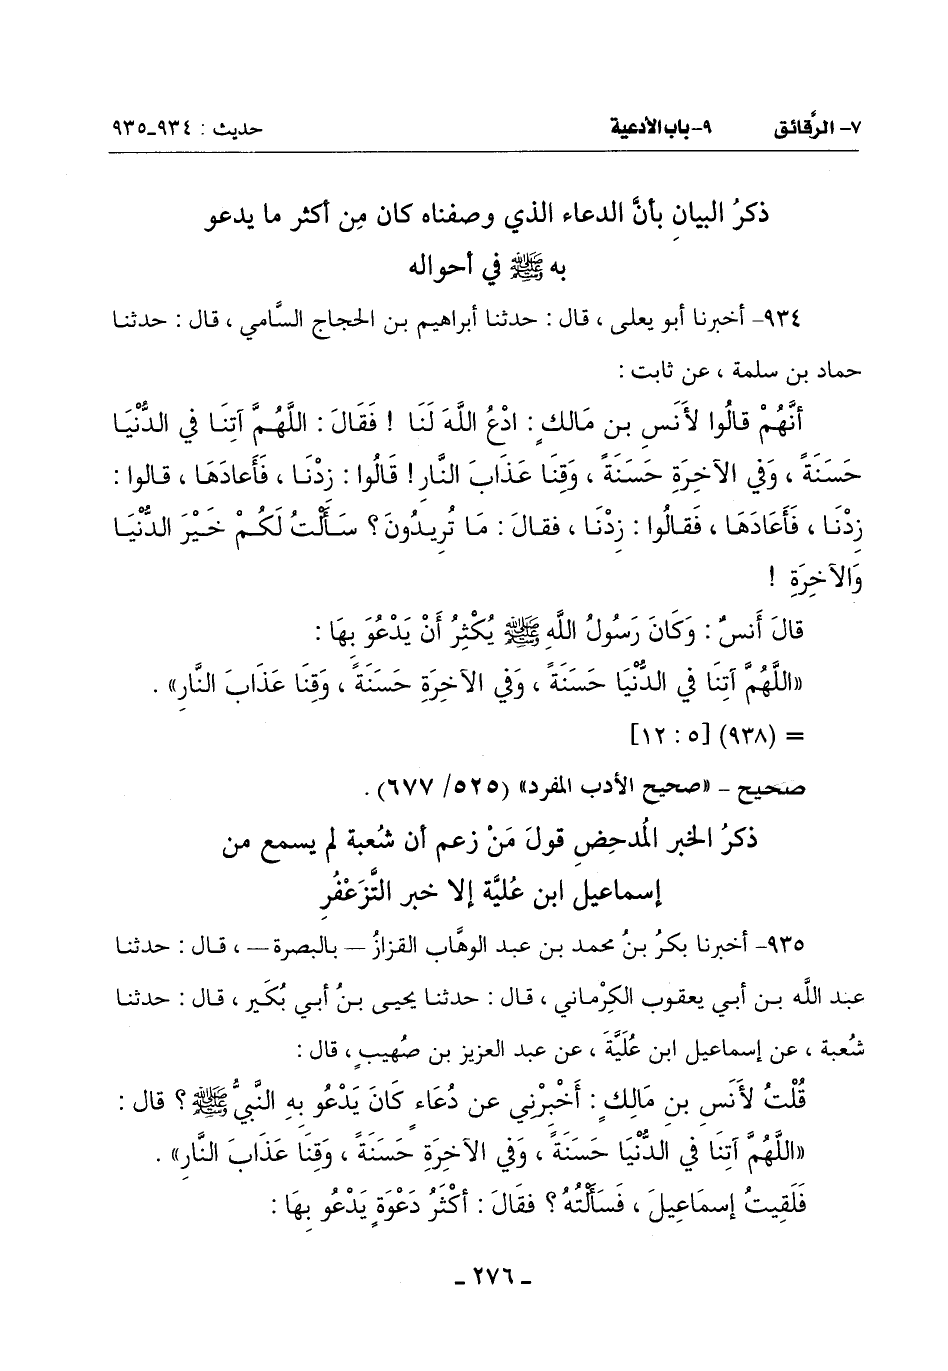 ٧- الرَّقائق ٩-باب الأدعية حديث : ٩٣٤-٩٣٥
ذكرُ البيانِ بأنَّ الدعاء الذي وصفناه كان مِن أكثر ما يدعو
به ﷺ في أحواله
٩٣٤- أخبرنا أبو يعلى ، قال : حدثنا أبراهيم بن الحجاج السَّامي ، قال : حدثنا
حماد بن سلمة ، عن ثابت :
أنَّهُمْ قالُوا لأَنَسِ بن مَالكٍ : ادْعُ اللَّهَ لَنَا ! فَقَالَ : اللَّهُمَّ آتِنَا في الدُّنْيَا
حَسَنَةً ، وَفي الآخِرَةِ حَسَنَةً ، وَقِنَا عَذَابَ النَّارِ ! قَالُوا : زِدْنَا ، فَأَعادَهَا ، قالوا :
زِدْنَا ، فَأَعَادَهَا ، فَقَالُوا : زِدْنَا ، فقالَ : مَا تُرِيدُونَ ؟ سَأَلْتُ لَكُمْ خَيْرَ الدُّنْيَا
وَالآخِرَةِ !
قالَ أَنَسٌ : وَكَانَ رَسُولُ اللَّهِ ﷺ يُكْثِرُ أَنْ يَدْعُوَ بِهَا :
«اللَّهُمَّ آتِنَا في الدُّنْيَا حَسَنَةً ، وَفي الآخِرَةِ حَسَنَةً ، وَقِنَا عَذَابَ النَّارِ» .
= (٩٣٨) [٥ : ١٢]
صحيح - «صحيح الأدب المفرد» (٥٢٥/ ٦٧٧) .
ذكرُ الخبر المُدحِضِ قولَ مَنْ زعم أن شُعبة لم يسمع من
إسماعيل ابن عُليَّة إلا خبر التَّزَعْفُرِ
٩٣٥- أخبرنا بكرُ بنُ محمد بن عبد الوهَّاب القزازُ — بالبصرة — ، قال : حدثنا
عبد الله بن أبي يعقوب الكِرْماني ، قال : حدثنا يحيى بنُ أبي بُكَير ، قال : حدثنا
شُعبة ، عن إسماعيل ابن عُلَيَّةَ ، عن عبد العزيز بن صُهيبٍ ، قال :
قُلْتُ لأَنَسِ بنِ مَالِكٍ : أَخْبِرْنِي عن دُعَاءٍ كَانَ يَدْعُو بِهِ النَّبيُّ ﷺ ؟ قال :
«اللَّهُمَّ آتِنَا في الدُّنْيَا حَسَنَةً ، وَفي الآخِرَةِ حَسَنَةً ، وَقِنَا عَذَابَ النَّارِ» .
فَلَقِيتُ إسمَاعِيلَ ، فَسَأَلْتُهُ ؟ فقَالَ : أكْثَرُ دَعْوَةٍ يَدْعُو بِهَا :
- ٢٧٦ -